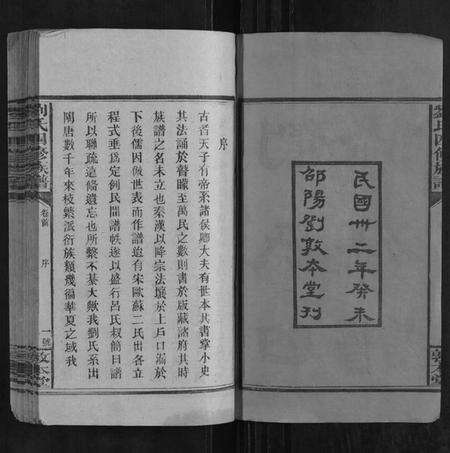 民國卅二年癸未
邵陽劉敦本堂刊
序
古者天子有帝系諸侯鄉大夫有世本其書掌小史
其法誦於瞽矇至萬民之數則書於版藏諸府其時
族譜之名未立也秦漢以降宗法壞於上戶口漏於
下後儒因倣世表而作譜迨有宋歐蘇二氏出各立
程式垂爲定例民間譜帙遂以盛行呂氏叔簡曰譜
所以聯疏遠條遺忘也所繫不綦大歟我劉氏系出
陶唐數千年來枝繁派衍族類幾徧華夏之域我
劉氏四修族譜
卷首
序
一號
敦本堂